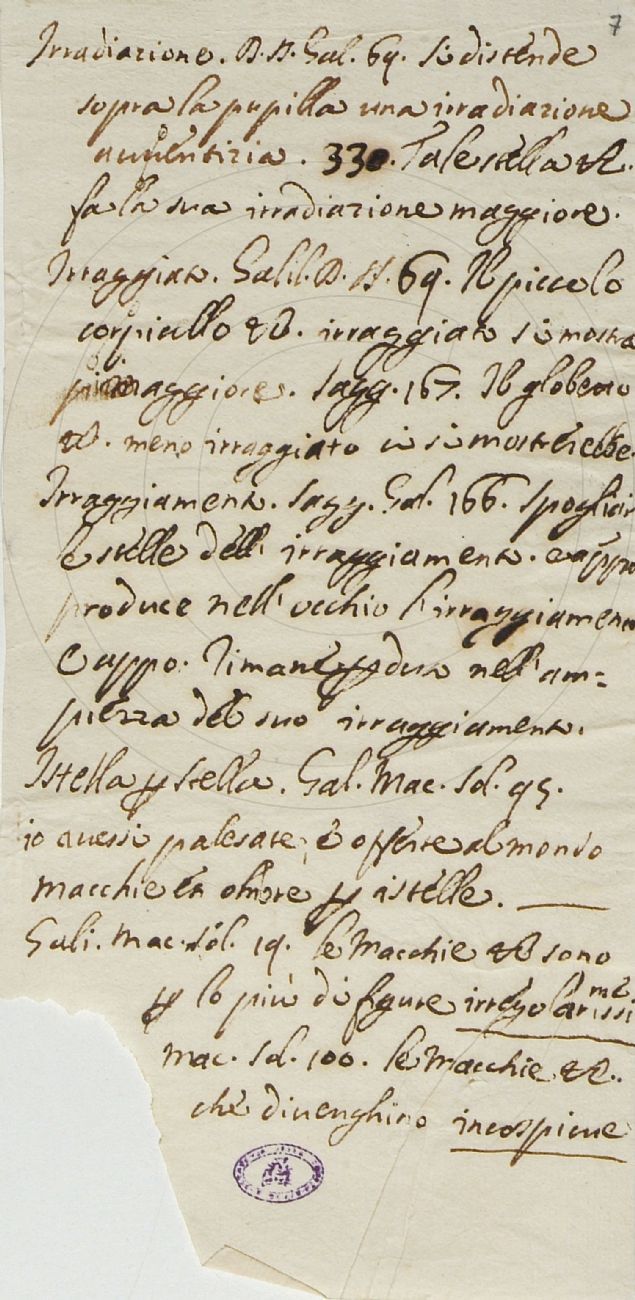 7
Irradiazione. D. N. Gal. 69. Si distende
sopra la pupilla una irradiazione
auuentizia. 330. Tale stella &c.
fa la sua irradiazione maggiore.
Irraggiato. Galil. D. N. 69. Il piccolo
corpicello &c. irraggiato si mostra
maggiore. Sagg. 167. Il globetto
&c. meno irraggiato ci si mostrerebbe.
Irraggiamento. Sagg. Gal. 166. Spogliar
le stelle dell' irraggiamento. e appo
produce nell' occhio l'irraggiamento
e appo. Rimane nell' am=
piezza del suo irraggiamento.
Istella p stella. Gal. Mac. Sol. 95.
io auessi palesate, e offerte al mondo
macchie et ombre p istelle.
Gali. Mac. Sol. 19. le Macchie &c sono
p lo più di figure irregolarissime
Mac. Sol. 100. le Macchie &c.
che diuenghino incospicue